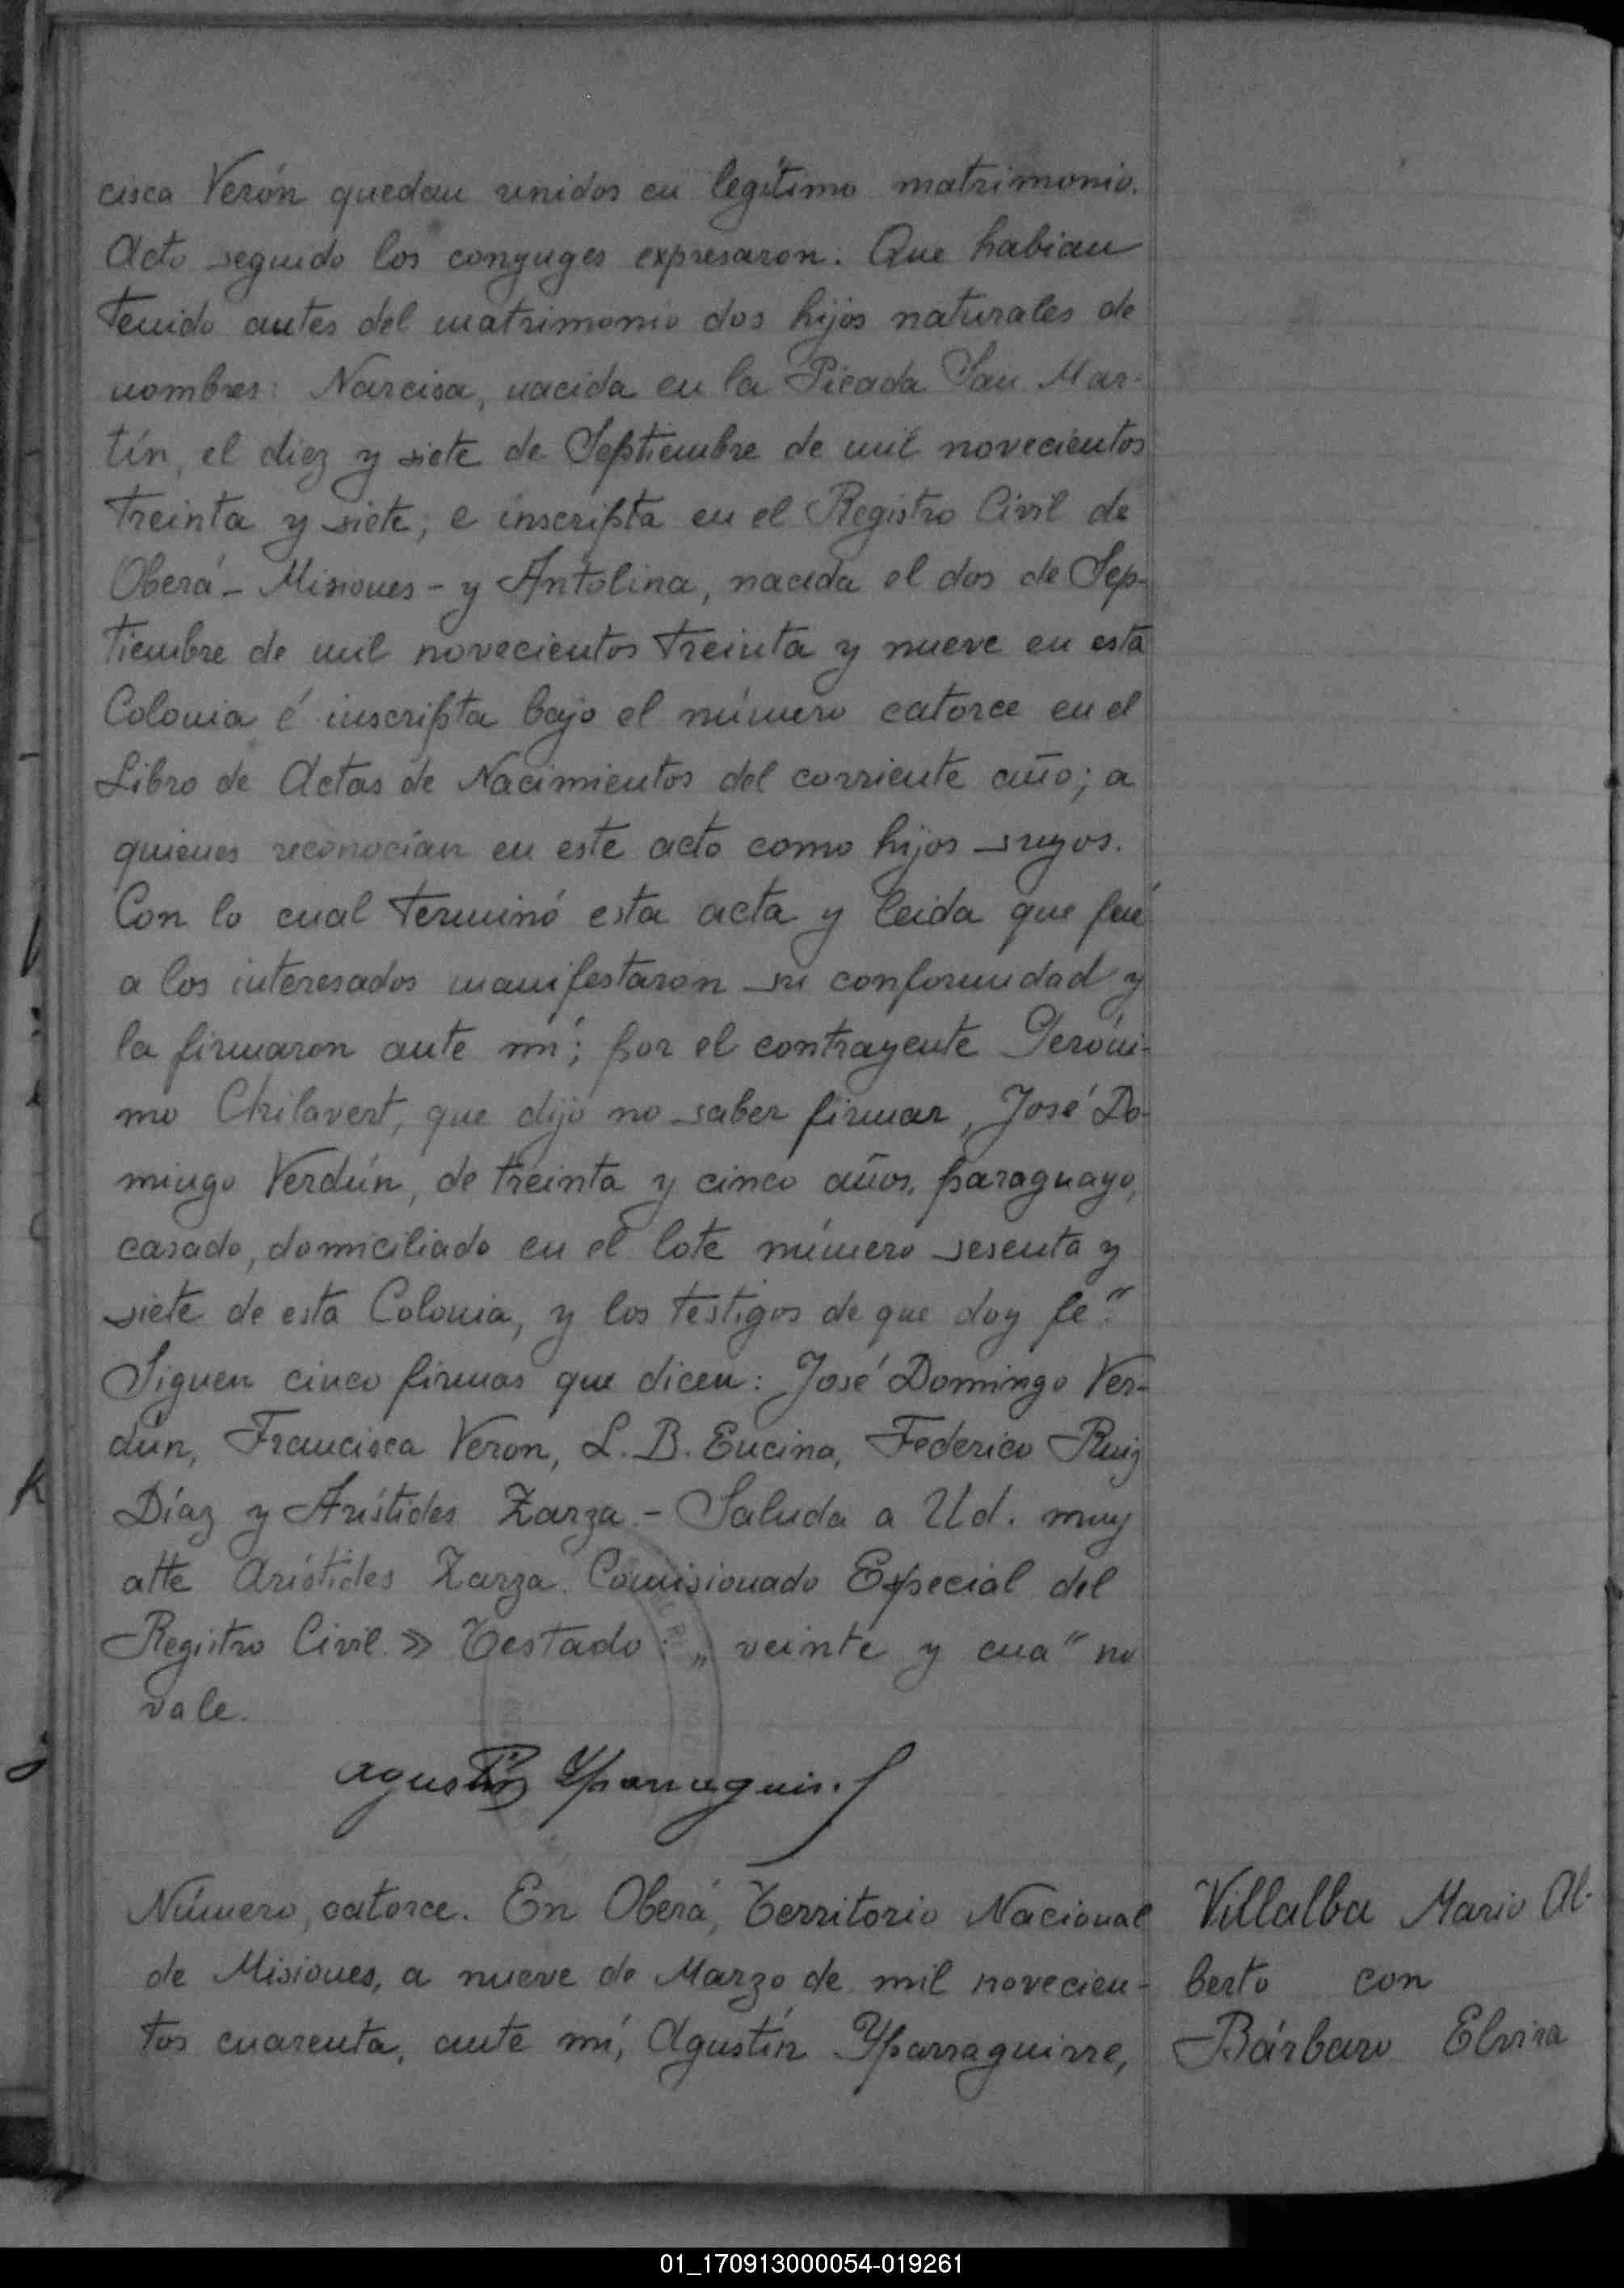 cisca Verón quedan unidos en legítimo matrimonio.
Acto seguido los conyuges expresaron: Que habian
tenido antes del matrimonio dos hijos naturales de
nombres: Narcisa, nacida en la Picada San Mar-
tín, el diez y siete de Septiembre de mil novecientos
treinta y siete, e inscripta en el Registro Civil de
Oberá - Misiones - y Antolina, nacida el dos de Sep-
tiembre de mil novecientos treinta y nueve en esta
Colonia é inscripta bajo el número catorce en el
Libro de Actas de Nacimientos del corriente año; a
quienes reconocían en este acto como hijos suyos.
Con lo cual terminó esta acta y leida que fué
a los interesados manifestaron su conformidad y
la firmaron ante mí; por el contrayente Geróni-
mo Chilavert, que dijo no saber firmar, José Do-
mingo Verdún, de treinta y cinco años, paraguayo,
casado, domiciliado en el lote número sesenta y
siete de esta Colonia, y los testigos de que doy fe".
Siguen cinco firmas que dicen: José Domingo Ver-
dún, Francisca Veron, L. B. Encina, Federico Ruiz
Díaz y Arístides Zarza. - Saluda a Ud. muy
atte Arístides Zarza. Comisionado Especial del
Registro Civil. » Testado: „ veinte y cua" no
vale.
Agustín Yparraguirre
Número, catorce. En Oberá, Territorio Nacional
de Misiones, a nueve de Marzo de mil novecien-
tos cuarenta, ante mí, Agustín Yparraguirre,
Villalba Mario Al-
berto con
Bárbaro Elvira
01_170913000054-019261